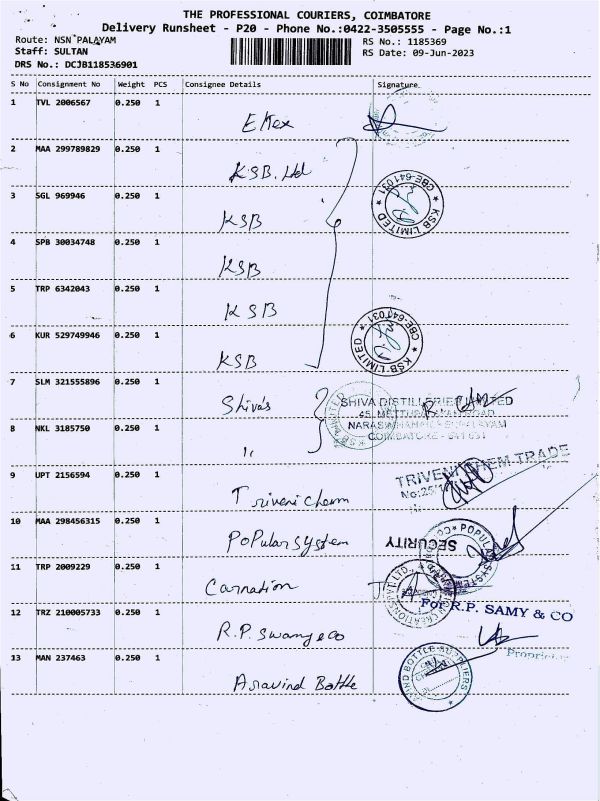 THE PROFESSIONAL COURIERS, COIMBATORE
Delivery Runsheet - P20 - Phone No.:0422-3505555 - Page No.:1
Route: NSN PALAYAM
RS No.: 1185369
Staff: SULTAN
RS Date: 09-Jun-2023
DRS No.: DCJB118536901
S No Consignment No Weight PCS Consignee Details Signature
1 TVL 2006567 0.250 1
2 MAA 299789829 0.250 1
KSB. Ltd
3 SGL 969946 0.250 1
KSB
KSB LIMITED CBE-641031
4 SPB 30034748 0.250 1
KSB
5 TRP 6342043 0.250 1
KSB
6 KUR 529749946 0.250 1
KSB
KSB LIMITED CBE-641031
7 SLM 321555896 0.250 1
Shiva's
SHIVA DISTILLERIES LIMITED
8 NKL 3185750 0.250 1
"
COIMBATORE - 641 031
9 UPT 2156594 0.250 1
Triveni Chem
TRIVENI CHEM TRADE
10 MAA 298456315 0.250 1
Popular system
SECURITY
POPULAR SYSTEM
11 TRP 2009229 0.250 1
Carnation
12 TRZ 210005733 0.250 1
R.P. Swamy & co
For R.P. SAMY & CO
Proprietor
13 MAN 237463 0.250 1
Aravind Bottle
BOTTLE SUPPLIERS